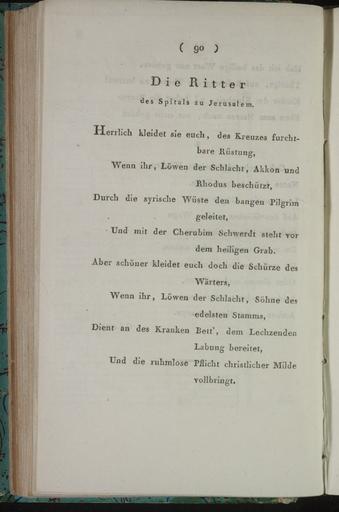 ( 90 )
Die Ritter
des Spitals zu Jerusalem.
Herrlich kleidet sie euch, des Kreuzes furcht-
bare Rüstung,
Wenn ihr, Löwen der Schlacht, Akkon und
Rhodus beschützt,
Durch die syrische Wüste den bangen Pilgrim
geleitet,
Und mit der Cherubim Schwerdt steht vor
dem heiligen Grab.
Aber schöner kleidet euch doch die Schürze des
Wärters,
Wenn ihr, Löwen der Schlacht, Söhne des
edelsten Stamms,
Dient an des Kranken Bett', dem Lechzenden
Labung bereitet,
Und die ruhmlose Pflicht christlicher Milde
vollbringt.